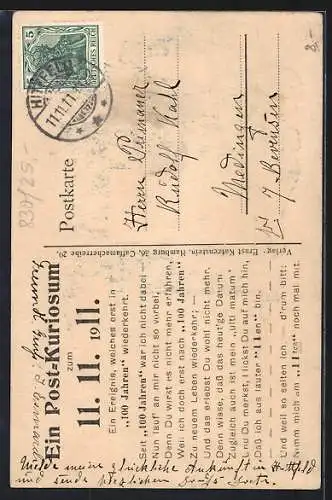 Ein Post-Kuriosum
zum
11. 11. 1911.
Ein Ereignis, welches erst in
"100 Jahren" wiederkehrt.
Seit "100 Jahren" war ich nicht dabei —
Nun "lauf" an mir nicht so vorbei,
Denn Du darfst es nicht mehr erfahren,
Weil ich doch erst nach "100 Jahren"
Zu neuem Leben wiederkehr';
Und das erlebst Du wohl nicht mehr.
Denn wisse, daß das heut'ge Datum
Zugleich auch ist mein „ulti matum"
Und Du merkst, blickst Du auf mich hin,
Daß ich aus lauter "11en" bin.
Und weil so selten ich — d'rum bitt':
Nimm mich am "11ten" noch mal mit.
Verlag: Ernst Kaltenstein, Hamburg 36, Caffamacherreihe 20.
Postkarte
Herrn
Rudolf
Medingen
b/ Bevensen
5
DEUTSCHES REICH
11.11.11
830/25.-
8.-
Melde meine glückliche Ankunft in
und sende herzlichen